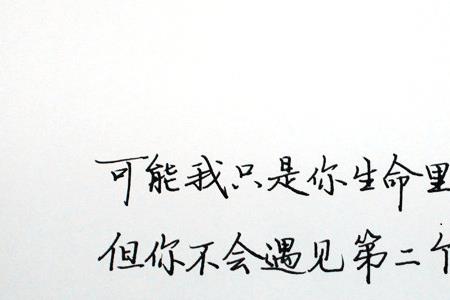 可能我只是你生命里
但你不会遇见第二个